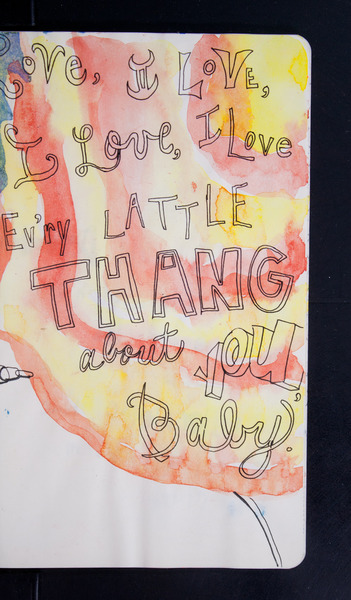 Love, I LOVE,
I Love, I Love
Ev'ry LATTLE
THANG
about you
Baby!